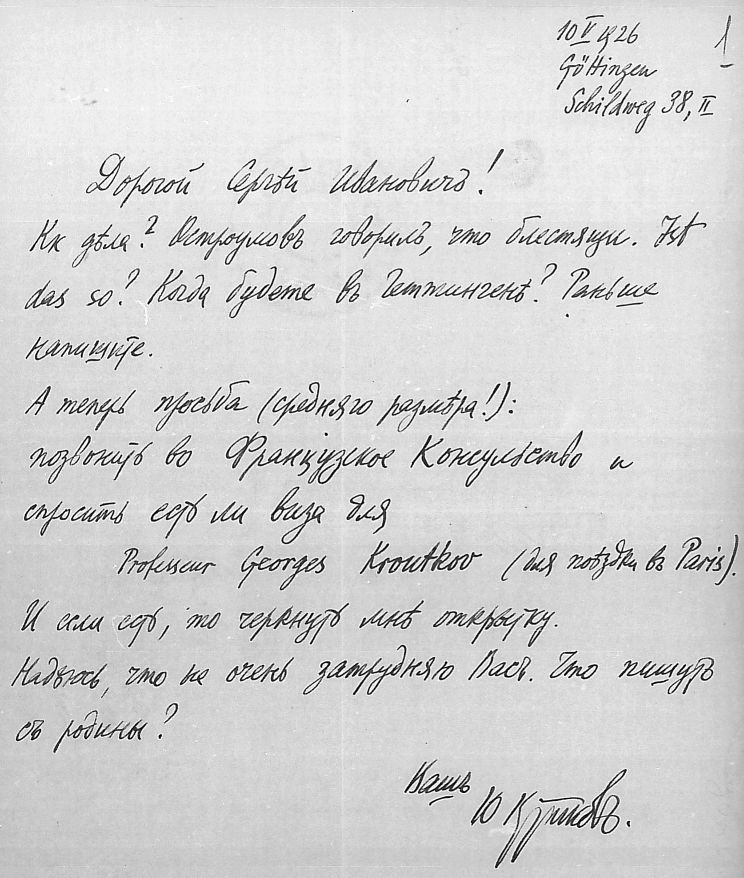 10 V 1926
1
Göttingen
Schildweg 38, II
Дорогой Сергѣй Ивановичъ!
Кк дѣла? Остроумовъ говорилъ, что блестящи. Ist
das so? Когда будете въ Геттингенѣ? Раньше
напишите.
А теперь просьба (средняго размѣра!):
позвонить во Французское Консульство и
спросить есть ли виза для
Professeur Georges Kroutkov (для поѣздки въ Paris).
И если есть, то черкнуть мнѣ открытку.
Надѣюсь, что не очень затрудняю Васъ. Что пишутъ
съ родины?
Вашъ
Ю Крутковъ.